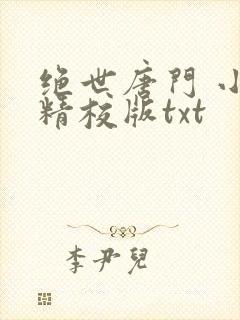 绝世唐門 小
精校版txt
李尹兒